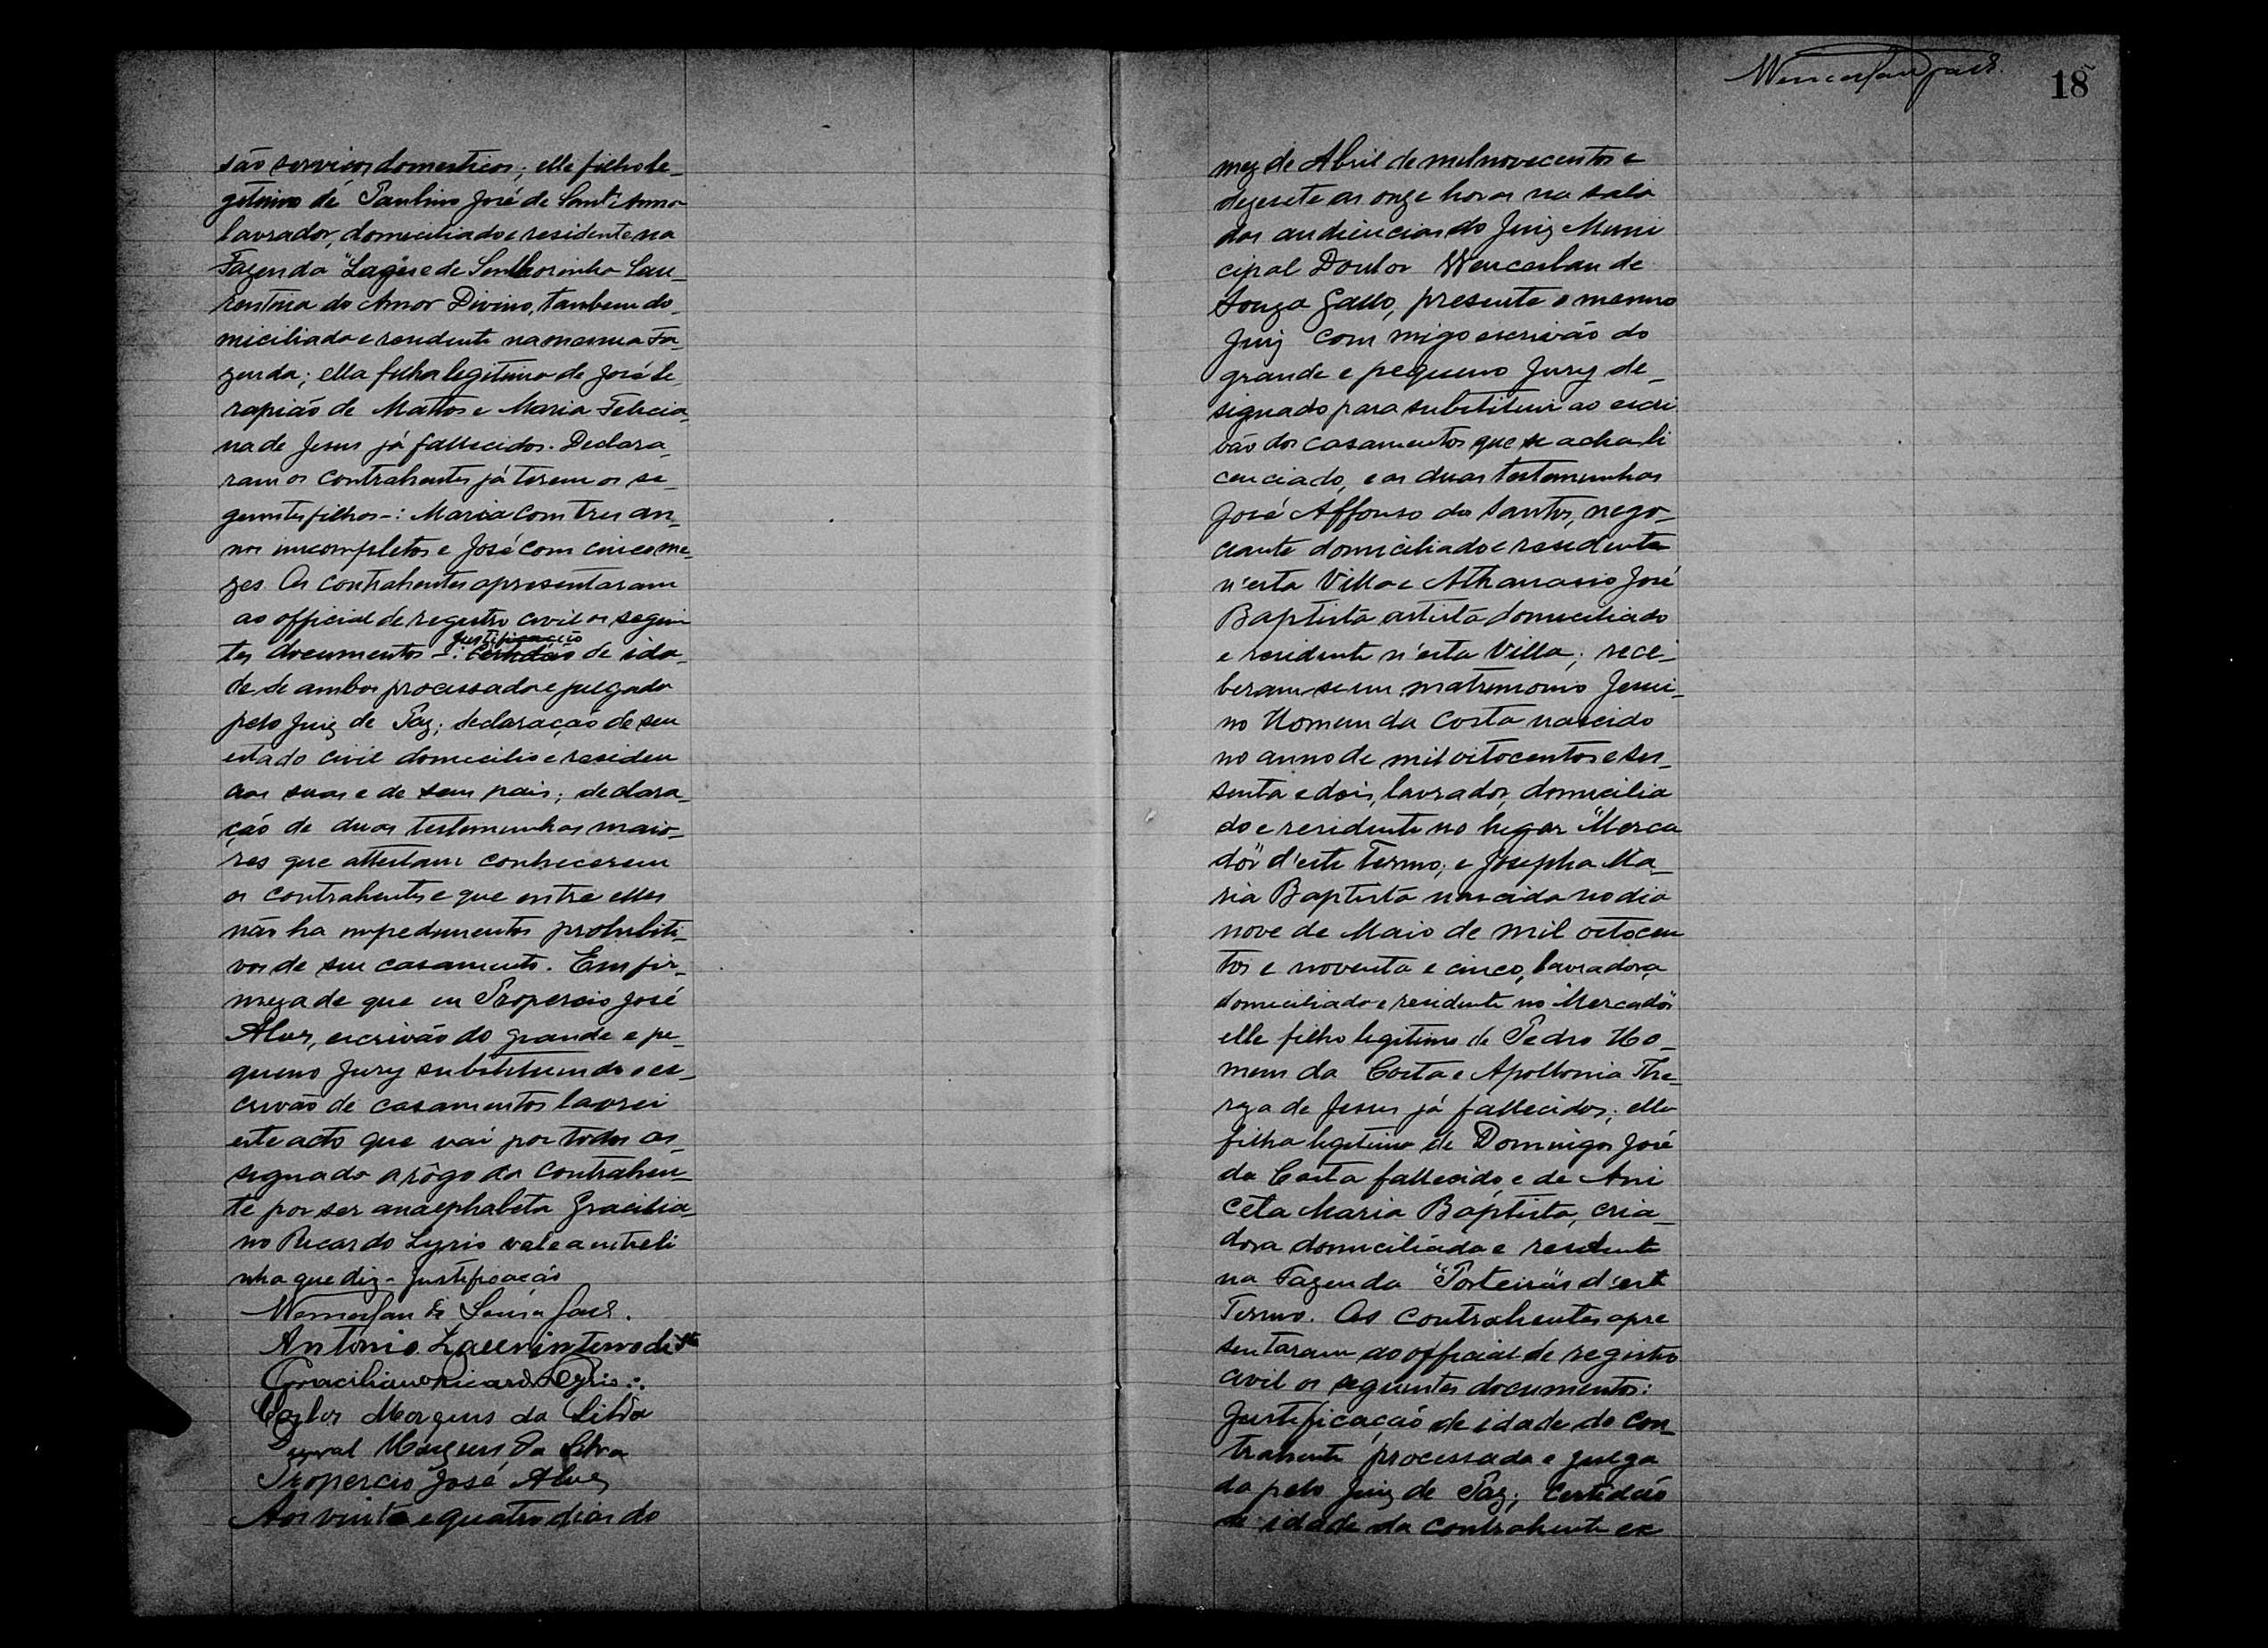 são serviços domesticos; elle filho le_
gitimo de Paulino José de Sant'Anna
lavrador, domiciliado e residente na
Fazenda "Lages" e de Senhorinha Lau_
rentina do Amor Divino, tambem do_
miciliada e residente na mesma Fa_
zenda; ella filha legitima de José Se_
rapião de Mattos e Maria Felicia_
na de Jesus já fallecidos. Declara_
ram os contrahentes já terem os se_
guintes filhos-: Maria com tres an_
nos incompletos e José com cinco me_
zes. Os contrahentes apresentaram
ao official de registro civil os seguin
tes documentos -: certidão justificação de ida_
de de ambos processada e julgada
pelo Juiz de Paz; declaração de seu
estado civil domicilio e residen
cias suas e de seus pais; declara_
ção de duas testemunhas maio_
res que attestam conhecerem
os contrahentes e que entre elles
não ha impedimentos prohibiti_
vos de seu casamento. Em fir_
meza de que eu Propercio José
Alves, escrivão do grande e pe_
queno Jury substituindo o es_
crivão de casamentos lavrei
este acto que vai por todos as_
signado a rôgo da contrahen_
te por ser analphabeta Gracilia_
no Ricardo Lyrio vale a entreli
nha que diz - Justificação
Wenceslau de Souza Gallo.
Antonio
Graciliano Ricardo Lyrio.
Carlos Marques da Silva
Marques da Silva
Propercio José Alves
Aos vinte e quatro dias do
Wenceslau Gallo.
18
mez de Abril de mil novecentos e
dezesete as onze horas na sala
das audiencias do Juiz Muni
cipal Doutor Wenceslau de
Souza Gallo, presente o mesmo
Juiz com migo escrivão do
grande e pequeno Jury de_
signado para substituir ao escri
vão dos casamentos que se acha li
cenciado, e as duas testemunhas
José Affonso dos Santos, nego_
ciante domiciliado e residente
n'esta Villa e Athanasio José
Baptista artista domiciliado
e residente n'esta Villa; rece_
beram-se em matrimonio Jesui_
no Homem da Costa nascido
no anno de mil oitocentos e ses_
senta e dois, lavrador, domicilia
do e residente no lugar "Merca
dor" d'este Termo; e Josepha Ma_
ria Baptista nascida no dia
nove de Maio de mil oitocen
tos e noventa e cinco, lavradora
domiciliada e residente no "Mercador"
elle filho legitimo de Pedro Ho_
mem da Costa e Apollonia The_
reza de Jesus já fallecidos; ella
filha legitima de Domingos José
da Costa fallecido, e de Ani
ceta Maria Baptista, cria_
dora domiciliada e residente
na Fazenda "Porteiras" d'este
Termo. Os contrahentes apre
sentaram ao official de registro
civil os seguintes documentos:
Justificação de idade do con_
trahente processada e julga
da pelo Juiz de Paz; certidão
de idade da contrahente ex